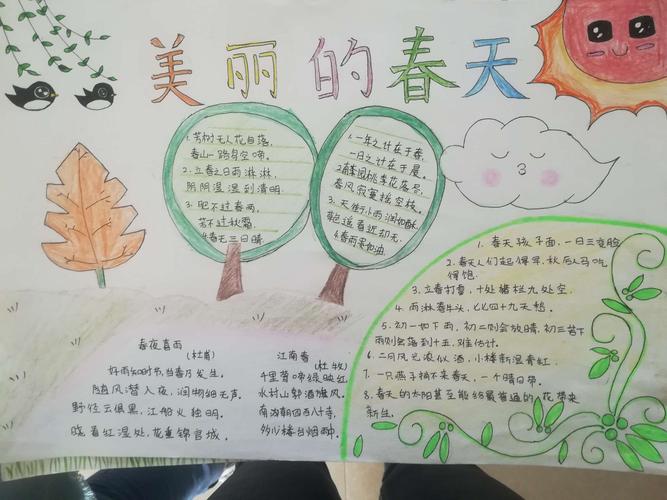 美丽的春天
1. 芳树无人花自落,
春山一路鸟空啼。
2. 立春之日雨淋淋,
阴阴湿湿到清明。
3. 肥不过春雨,
苦不过秋霜。
4. 春天三日晴
1. 一年之计在于春,
一日之计在于晨。
2. 南园桃李花落尽,
春风寂寞摇空枝。
3. 天街小雨润如酥,
草色遥看近却无。
4. 春雨贵如油。
1. 春天孩子面,一日三变脸
2. 春天人们起得早,秋后人马吃
得饱.
3. 立春打雷,十处猪栏九处空.
4. 雨淋春牛头,七七四十九天愁.
5. 初一如下雨,初二则会放晴,初三若下
雨则会落到十五,难估计。
6. 二月风光浓似酒,小楼新湿青红.
7. 一只燕子捎不来春天,一个晴日带.
8. 春天的太阳甚至能给最普通的花带来
新生.
春夜喜雨
(杜甫)
好雨知时节,当春乃发生。
随风潜入夜,润物细无声。
野径云俱黑,江船火独明。
晓看红湿处,花重锦官城。
江南春
(杜牧)
千里莺啼绿映红
水村山郭酒旗风。
南朝四百八十寺
多少楼台烟雨中。